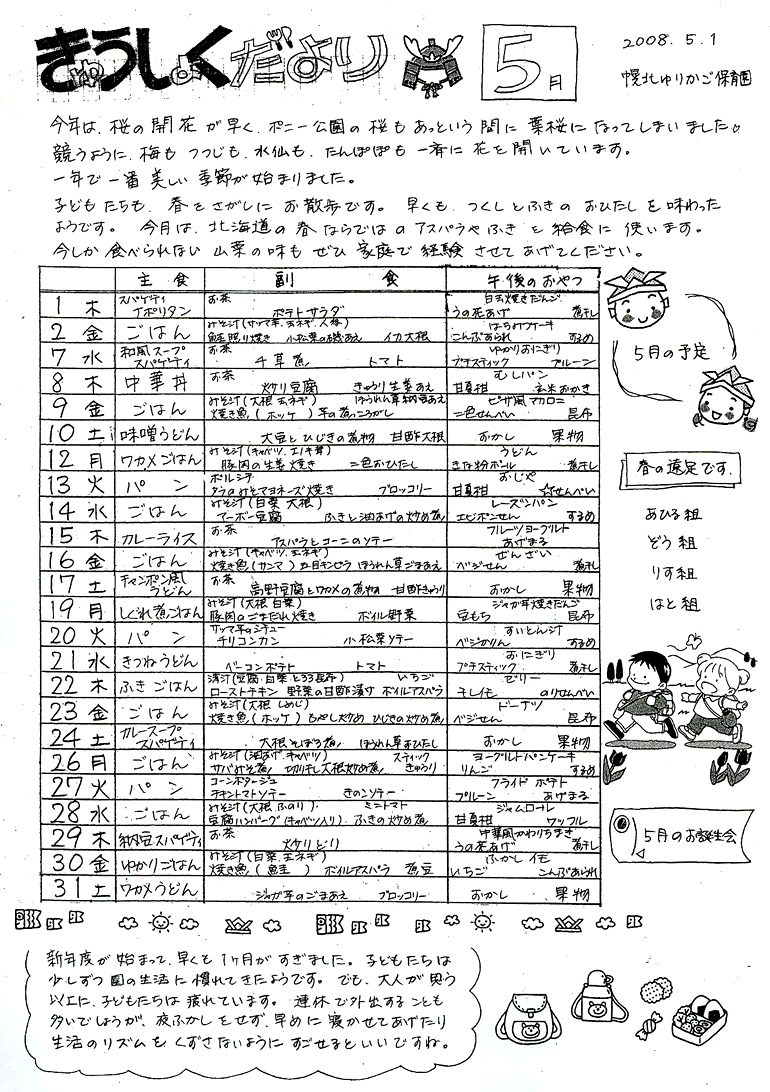 きゅうしょくだより
5月
2008.5.1
幌北ゆりかご保育園
今年は、桜の開花が早く、ポニー公園の桜もあっという間に葉桜になってしまいました。
競うように、梅もつつじも、水仙も、たんぽぽも一斉に花を開いています。
一年で一番美しい季節が始まりました。
子どもたちも、春をさがしにお散歩です。早くも、つくしとふきのおひたしを味わった
ようです。今月は、北海道の春ならではのアスパラやふきを給食に使います。
今しか食べられない山菜の味もぜひ家庭で経験させてあげてください。
主食 副食 午後のおやつ
1 木 スパゲティナポリタン お茶 ポテトサラダ 白玉焼きだんご うの花あげ 煮干し
2 金 ごはん みそ汁(サツマ芋、玉ネギ、人参) 鮭照り焼き 小松菜のお磯あえ イカ大根 はちみつケーキ こんぶあられ するめ
7 水 和風スープスパゲティ お茶 千草焼 トマト ゆかりおにぎり プチスティック プルーン
8 木 中華丼 お茶 炒り豆腐 きゅうり生姜あえ むしパン 甘真柑 玄米おかき
9 金 ごはん みそ汁(大根 玉ネギ) ほうれん草納豆あえ 焼き魚(ホッケ) 芋の煮ころがし ピザ風マカロニ 二色せんべい 昆布
10 土 味噌うどん 大豆とひじきの煮物 甘酢大根 おかし 果物
12 月 ワカメごはん みそ汁(キャベツ、エノキ茸) 豚肉の生姜焼き 二色おひたし うどん きな粉ボール 煮干し
13 火 パン ボルシチ タラのみそマヨネーズ焼き ブロッコリー おじや 甘真柑 せんべい
14 水 ごはん みそ汁(白菜 大根) マーボー豆腐 ふきと油あげの炒め煮 レーズンパン エビポンせん するめ
15 木 カレーライス お茶 アスパラとコーンのソテー フルーツヨーグルト あげまる
16 金 ごはん みそ汁(キャベツ、玉ネギ) 焼き魚(サンマ) 五目キンピラ ほうれん草ごまあえ ぜんざい ベジせん 煮干し
17 土 チャンポン風うどん お茶 高野豆腐とワカメの煮物 甘酢きゅうり おかし 果物
19 月 しぐれ煮ごはん みそ汁(大根 白菜) 豚肉のごまだれ焼き ボイル野菜 ジャガ芋焼きだんご 豆もち 昆布
20 火 パン サツマ芋のシチュー チリコンカン 小松菜ソテー すいとん汁 ベジかりん するめ
21 水 きつねうどん ベーコンポテト トマト おにぎり プチスティック 煮干し
22 木 ふきごはん 清汁(豆腐、白菜、とろろ昆布) いちご ローストチキン 野菜の甘酢漬け ボイルアスパラ ゼリー 干しイモ のりせんべい
23 金 ごはん みそ汁(大根 しめじ) 焼き魚(ホッケ) もやし炒め ひじきの炒め煮 ドーナツ ベジせん 昆布
24 土 カレースープスパゲティ 大根そぼろ煮 ほうれん草おひたし おかし 果物
26 月 ごはん みそ汁(油あげ、キャベツ) スティック サバみそ煮 切り干し大根炒め煮 きゅうり ヨーグルトパンケーキ りんご するめ
27 火 パン コーンポタージュ チキントマトソテー きのこソテー フライドポテト プルーン あげまる
28 水 ごはん みそ汁(大根、ふのり) ミニトマト 豆腐ハンバーグ(キャベツ入り) ふきの炒め煮 ジャムロール 甘真柑 ワッフル
29 木 納豆スパゲティ お茶 炒りどり 中華風かわりちまき うの花あげ 煮干し
30 金 ゆかりごはん みそ汁(白菜、玉ネギ) 焼き魚(鮭) ボイルアスパラ 煮豆 ふかしイモ いちご こんぶあられ
31 土 ワカメうどん ジャガ芋のごまあえ ブロッコリー おかし 果物
5月の予定
春の遠足です。
あひる組
ぞう組
りす組
はと組
5月のお誕生会
新年度が始まって、早くも1ヶ月がすぎました。子どもたちは
少しずつ園の生活に慣れてきたようです。でも、大人が思う
以上に、子どもたちは疲れています。連休で外出することも
多いでしょうが、夜ふかしをせず、早めに寝かせてあげたり
生活のリズムをくずさないようにすごせるといいですね。